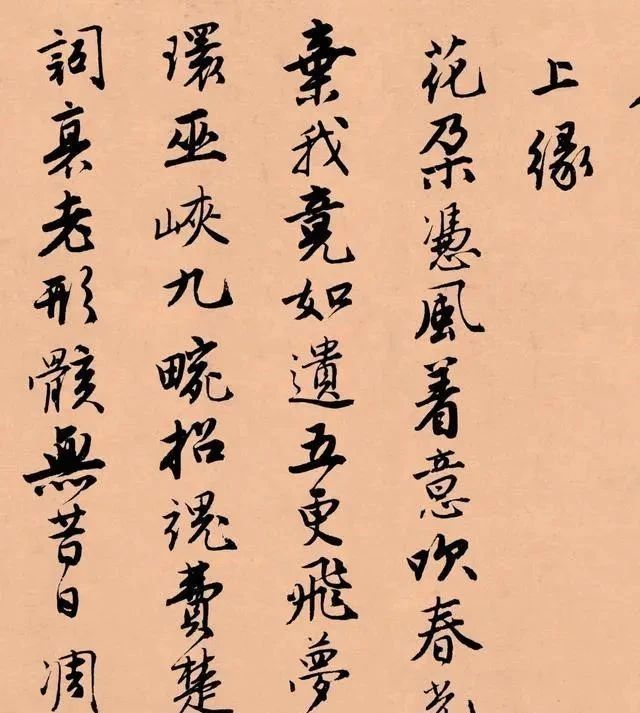 上缘
花朵憑風着意吹春
棄我竟如遺五更飛夢
環巫峽九畹招魂費楚
詞哀老形骸無昔日凋